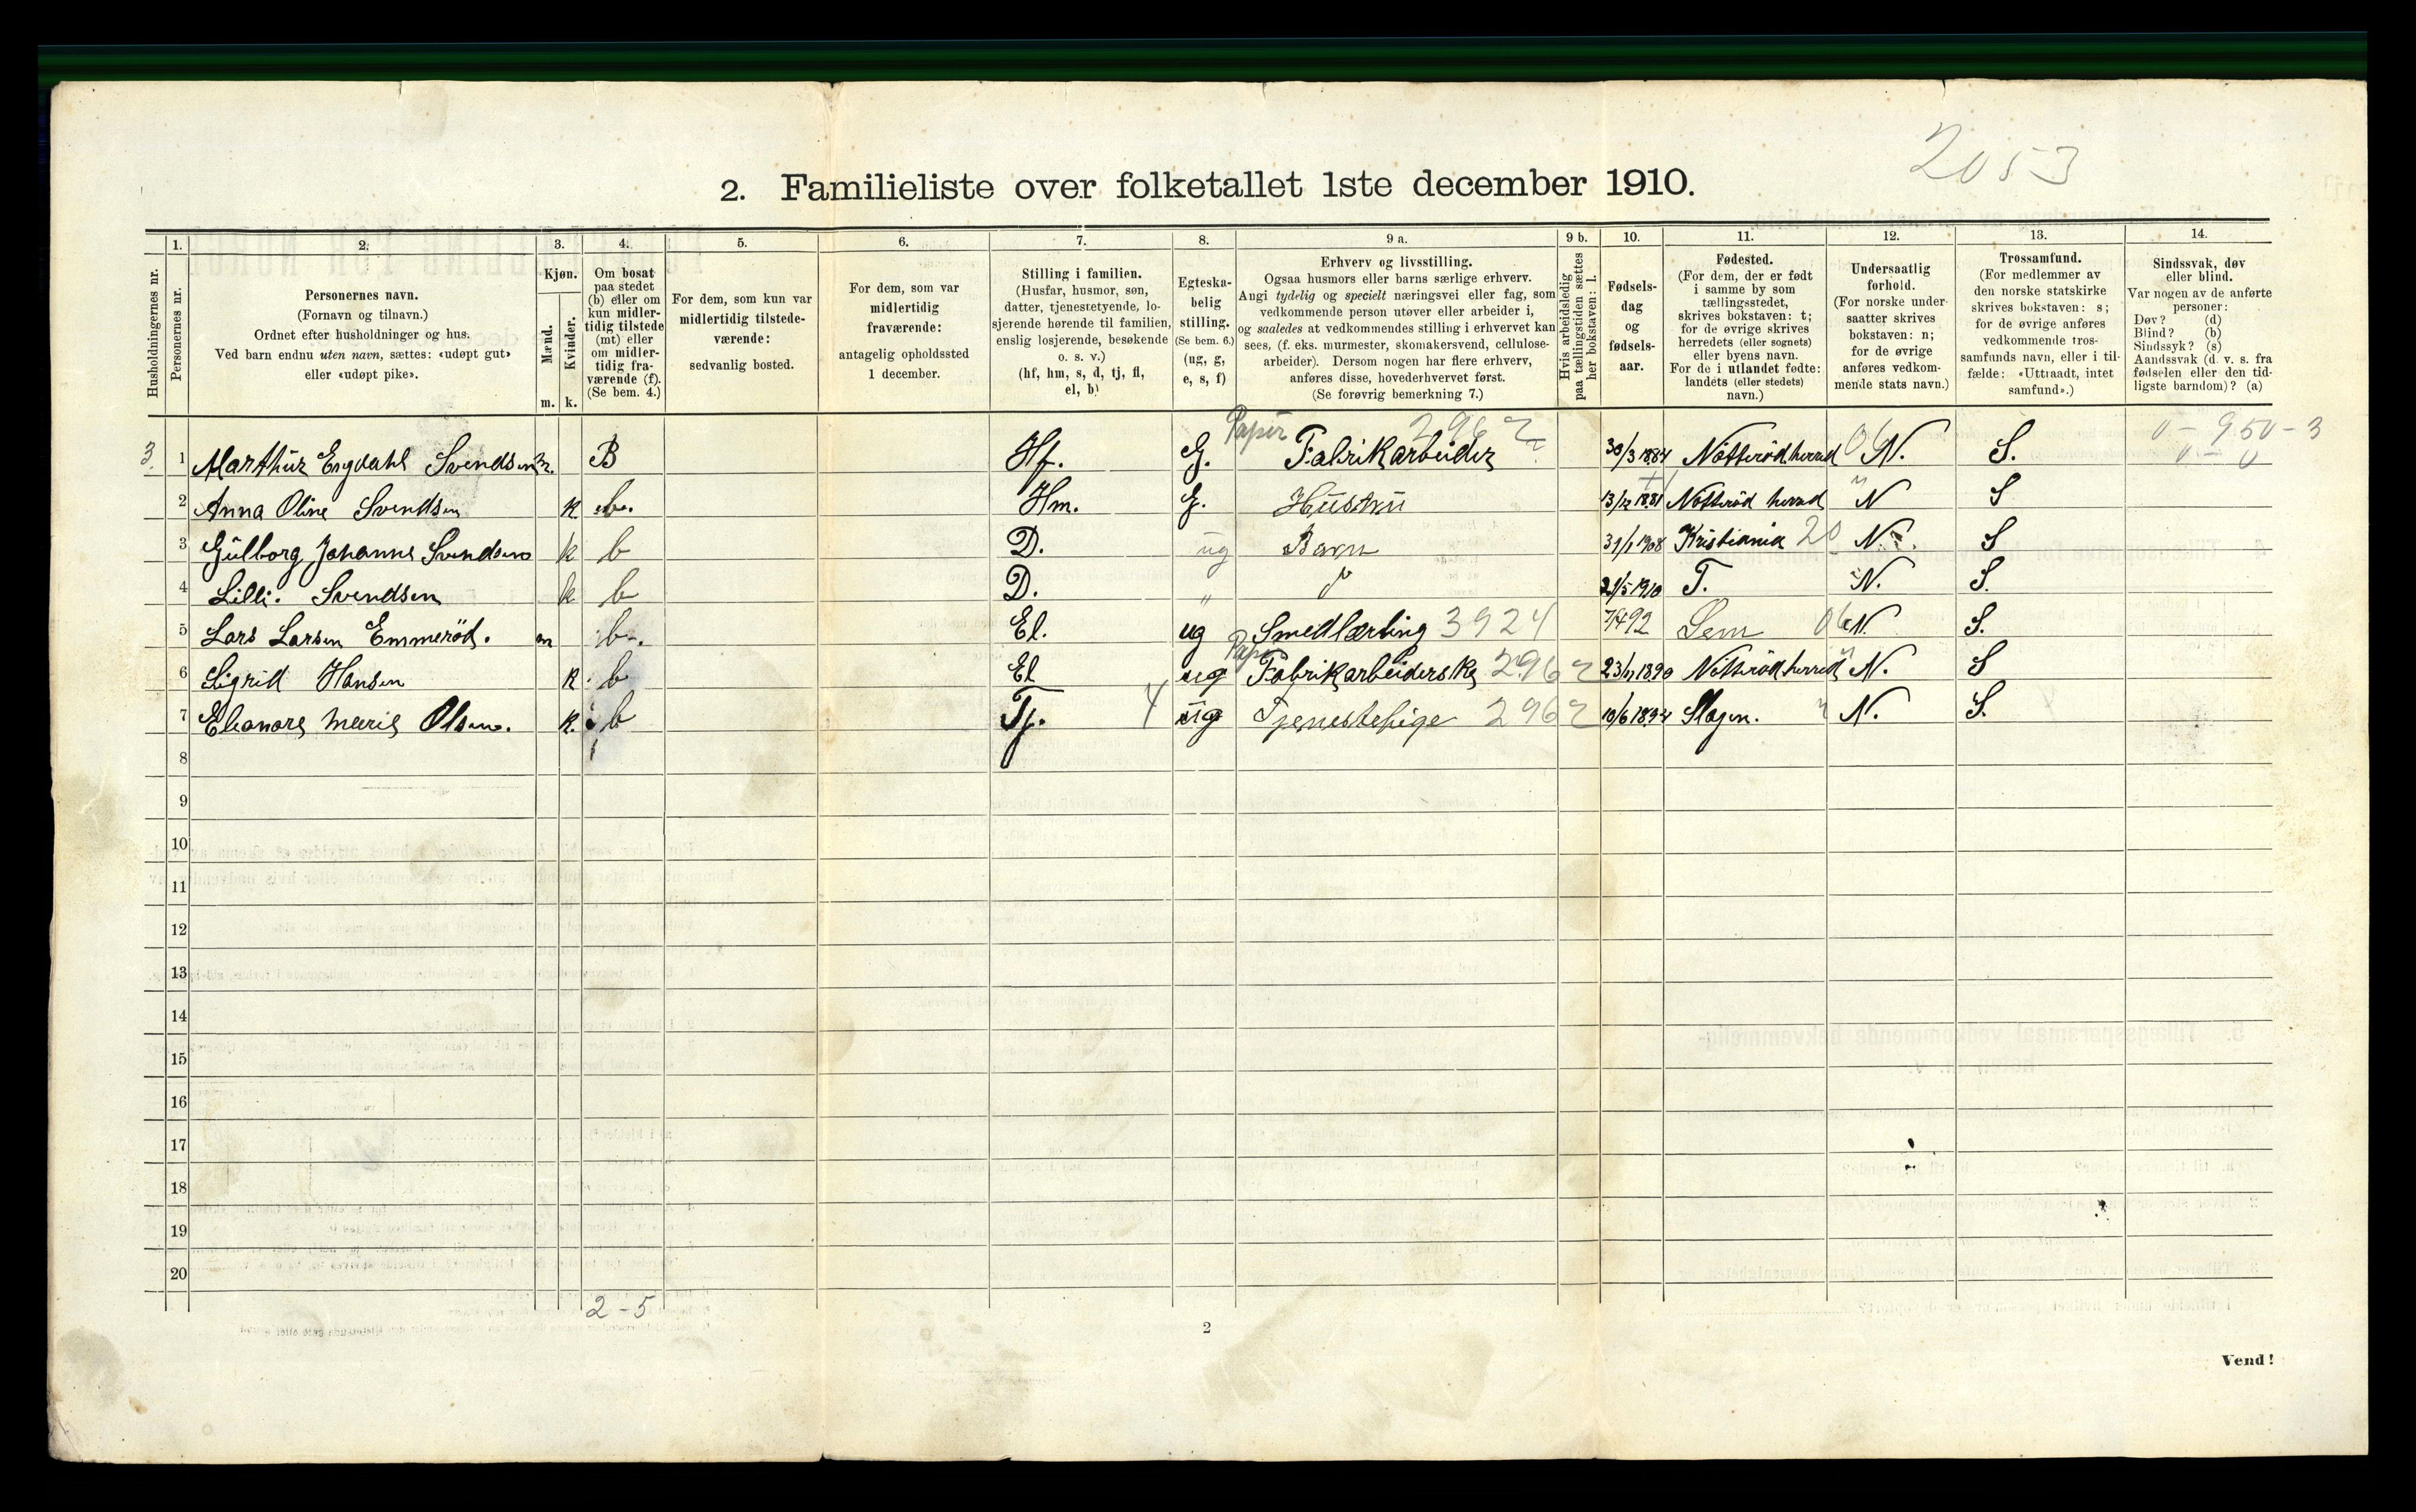 2053
2. Familieliste over folketallet 1ste december 1910.
Husholdningernes nr.
1. Personernes nr.
2. Personernes navn.
(Fornavn og tilnavn.)
Ordnet efter husholdninger og hus.
Ved barn endnu uten navn, sættes: «udøpt gut»
eller «udøpt pike».
3. Kjøn.
Mænd. m.
Kvinder. k.
4. Om bosat
paa stedet
(b) eller om
kun midler-
tidig tilstede
(mt) eller
om midler-
tidig fra-
værende (f).
(Se bem. 4.)
5. For dem, som kun var
midlertidig tilstede-
værende:
sedvanlig bosted.
6. For dem, som var
midlertidig
fraværende:
antagelig opholdssted
1 december.
7. Stilling i familien.
(Husfar, husmor, søn,
datter, tjenestetyende, lo-
sjerende hørende til familien,
enslig losjerende, besøkende
o. s. v.)
(hf, hm, s, d, tj, fl,
el, b)
8. Egteska-
belig
stilling.
(Se bem. 6.)
(ug, g,
e, s, f)
9 a. Erhverv og livsstilling.
Ogsaa husmors eller barns særlige erhverv.
Angi tydelig og specielt næringsvei eller fag, som
vedkommende person utøver eller arbeider i,
og saaledes at vedkommendes stilling i erhvervet kan
sees, (f. eks. murmester, skomakersvend, cellulose-
arbeider). Dersom nogen har flere erhverv,
anføres disse, hovederhvervet først.
(Se forøvrig bemerkning 7.)
9 b. Hvis arbeidsledig
paa tællingstiden sættes
her bokstaven: l.
10. Fødsels-
dag
og
fødsels-
aar.
11. Fødested.
(For dem, der er født
i samme by som
tællingsstedet,
skrives bokstaven: t;
for de øvrige skrives
herredets (eller sognets)
eller byens navn.
For de i utlandet fødte:
landets (eller stedets)
navn.)
12. Undersaatlig
forhold.
(For norske under-
saatter skrives
bokstaven: n;
for de øvrige
anføres vedkom-
mende stats navn.)
13. Trossamfund.
(For medlemmer av
den norske statskirke
skrives bokstaven: s;
for de øvrige anføres
vedkommende tros-
samfunds navn, eller i til-
fælde: «Uttraadt, intet
samfund».)
14. Sindssvak, døv
eller blind.
Var nogen av de anførte
personer:
Døv? (d)
Blind? (b)
Sindssyk? (s)
Aandssvak (d. v. s. fra
fødselen eller den tid-
ligste barndom)? (a)
3. 1 Marthur Engdahl Svendsen m. B Hf. G. Papir Fabrikarbeider 2962 30/3 1884 Nötteröd herred 06 N. S. 0-950-3
2 Anna Oline Svendsen k b. Hm. G. Hustru 13/12 1881 Nötteröd herred " N S
3 Gulborg Johanne Svendsen k b D. ug Barn 31/1 1908 Kristiania 20 N. S
4 Lilli. Svendsen k b D. " 21/5 1910 T. N. S.
5 Lars Larsen Emmeröd. m b. El. ug Smedlærling 3924 7/4 92 Sem 06 N. S.
6 Sigrid Hansen k b El ug Papir Fabrikarbeiderske 2962 23/11 1890 Nötteröd herred " N. S
7 Eleonore Marie Olsen. k. b Tj. 4 ug Tjenestepige 2962 Slagen. " N. S.
8
9
10
11
12
13
14
15
16
17
18
19
20
2-5
2
Vend!